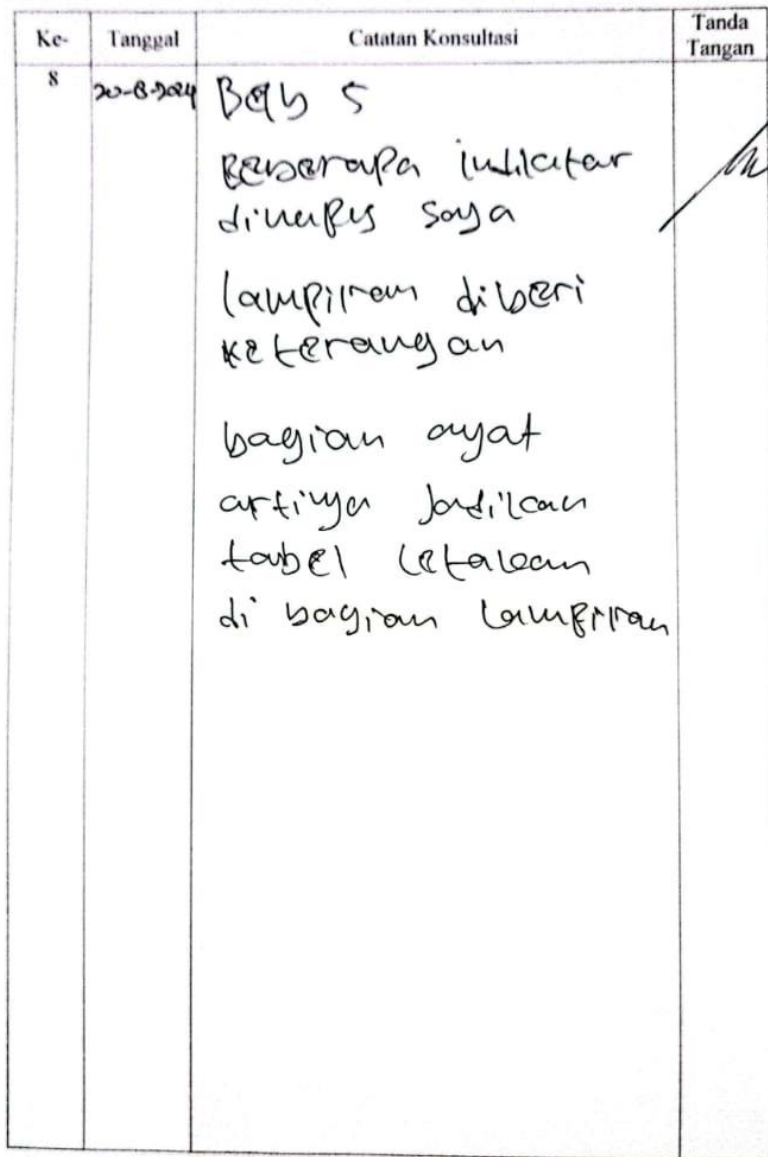 Ke- Tanggal Catatan Konsultasi Tanda Tangan
8 20-8-2024 Bab 5
Beberapa indikator
dihapus saja
lampiran diberi
keterangan
bagian ayat
artinya jadikan
tabel letakan
di bagian lampiran